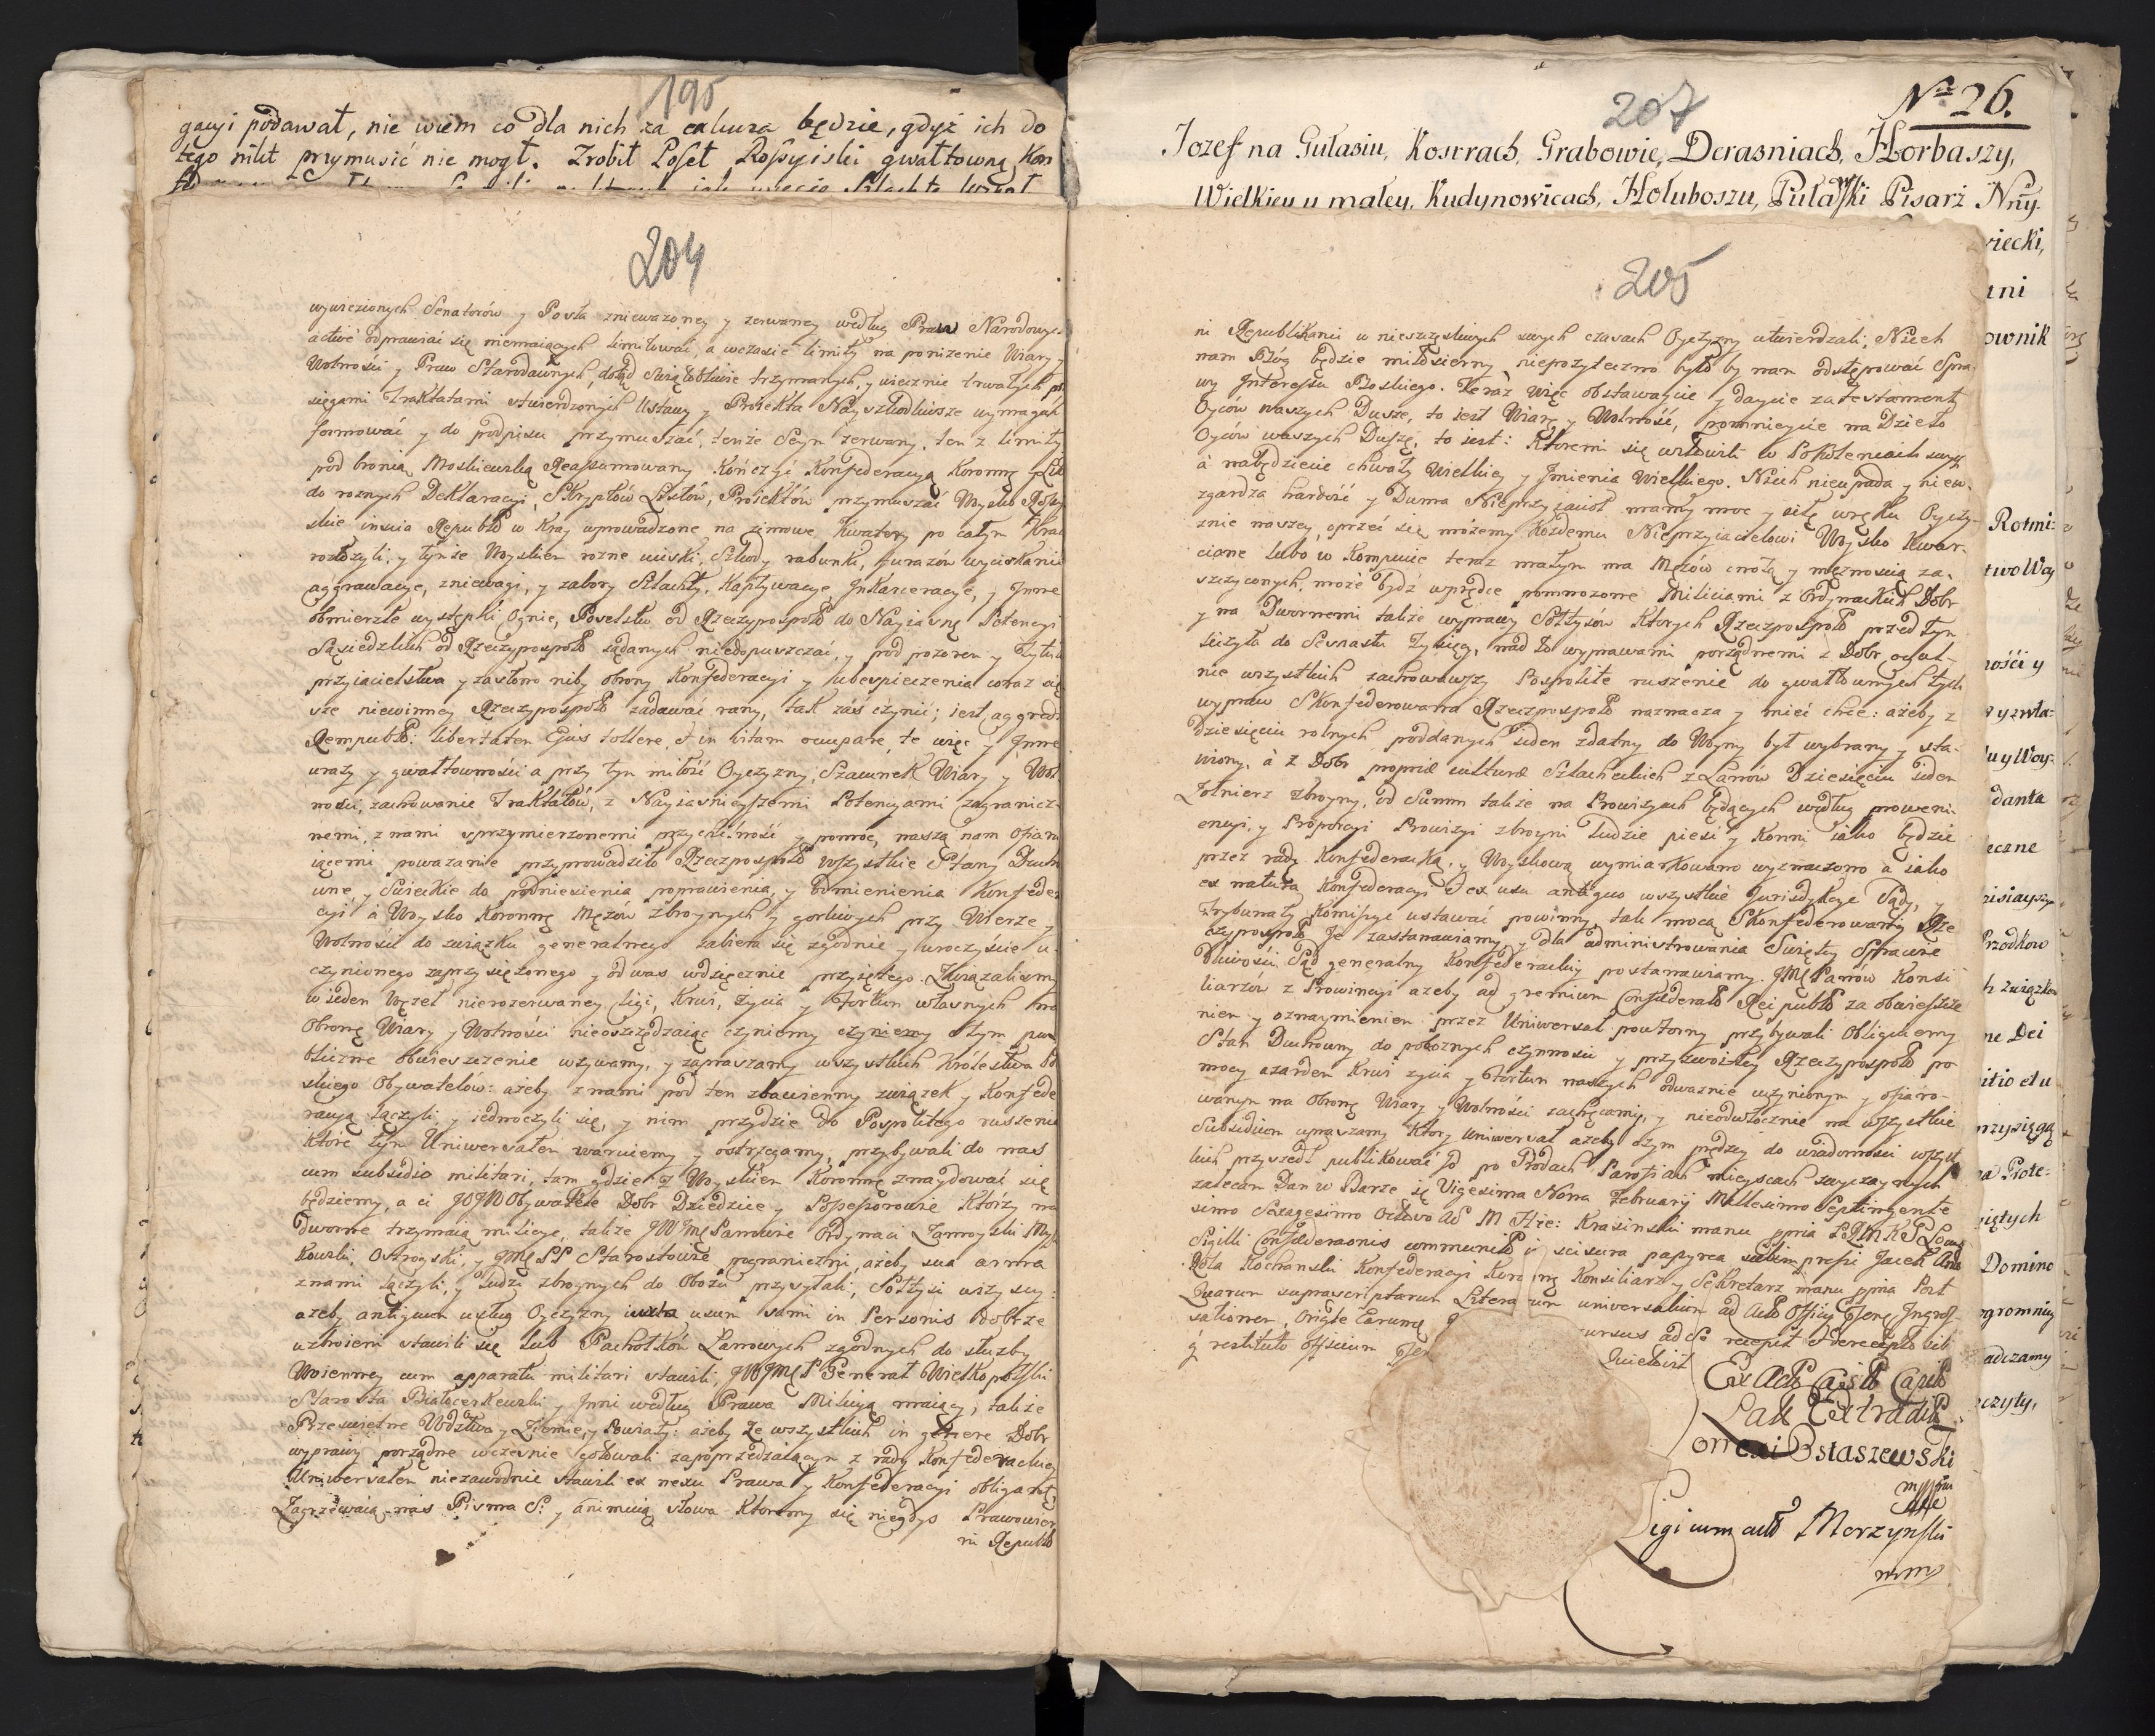 195
gacyi podawał, nie wiem co dla nich za exkuza będzie, gdyż ich do
tego nikt przymusić nie mogł. Zrobił Poseł Rossyiski gwałtowną Kon
204
wywiezionych Senatorów y Posła znieważoney y zerwaney według Praw Narodowych
activé odprawiać się niemaiących limitować, a wczasie limity na poniżenie Wiary y
Wolności y Praw Starodawnych, dotąd Swiątobliwie trzymanych, y wiecznie trwałych
sięgami Traktatami stwierdzonych Ustawy y Proiekta Nayszkodliwsze wymagać
formować y do podpisu przymuszać, tenże Seym zerwany, ten z limity
pod bronią Moskiewską Reassumowany kończyć Konfederacyą Koronną y Lit
do roznych Deklaracyi, Skryptów Listów, Proiektów przymuszać Woysko Rossy
skie inscia Republ w Kray wprowadzone na zimowe kwatery po całym Kraiu
rozłożyli, y tymże Woyskiem rozne uciski, Szkody, rabunki, furażów wyciskanie
aggrawacye, zniewagi, y zabory Szlachty, Kaptywacye, Inkarceracye, y Inne
obmierzłe występki Ognie, Poselstw od Rzeczypospol do Nayiasney Potencyi
Sąsiedzkich od Rzeczypospol żądanych niedopuszczać, y pod pozorem y Tytułem
przyiacielstwa y zasłoną niby obrony Konfederacyi y ubespieczenia coraz cięż
sze niewinney Rzeczypospol zadawać rany, tak zaś czynić; iest aggredi
Rempubl: libertatem Ejus tollere, et in vitam occupare, te więc y Inne
urazy y gwałtowności a przy tym miłość Oyczyzny, Szacunek Wiary y Wol
ności, zachowanie Traktatów, z Nayiasnieyszemi Potencyami zagranicz-
nemi, z nami sprzymierzonemi przychilność y pomoc, naszą nam ofiaru
iącemi poważanie przyprowadziło Rzeczpospol wszystkie Stany Ducho
wne, y Swieckie do podniesienia poprawienia, y odmienienia Konfede
cyi à Woysko Koronne Mężów zbroynych y gorliwych przy Wierze y
Wolności do związku generalnego zabiera się zgodnie y uroczyście u-
czynionego zaprzysiężonego y od was wdzięcznie przyiętego. Związaliśmy
w ieden węzeł nierozerwaney ligi, Krwi, życia y Fortun własnych na
Obronę Wiary y Wolności nieoszczędzaiąc czyniemy czyniemy o tym pu
bliczne obwieszczenie wzywamy, y zapraszamy wszystkich Królestwa Pol
skiego Obywatelów: ażeby z nami pod ten zbawienny związek y Konfede
racyą łączyli, y iednoczyli się, y nim przydzie do Pospolitego ruszenia
które tym Uniwersałem waruiemy y ostrzegamy, przybywali do nas
cum subsidio militari, tam gdzie z Woyskiem Koronnym znaydować się
będziemy, a ci JOJW Obywatele Dobr Dziedzice y Possessorowie Którzy na
dworne trzymaią milicye, także JWJMć Panowie Ordynaci Zamoyski Mysz
kowski, Ostrogski, y JMć PP Starostowie pograniczni, ażeby sua arma
z nami łączyli, y ludzi zbroynych do Obozu przysyłali, Sołtysi wszyscy:
ażeby antiquum usług Oyczyzny iuxta usum sami in Personis dobrze
uzbroieni stawili się lub Pachołków Łanowych zgodnych do służby
Woienney cum apparatu militari stawili, JWJMć P Generał Wielkopolski
Starosta Białocerkewski y Inni według Prawa Milicyą maiący, także
Prześwietne Wodztwa y Ziemie, y Powiaty: ażeby ze wszystkich in genere Dobr
wyprawy porządne wczesnie gotowali zapoprzedzaiącym z rady Konfederackiey
Uniwersałem niezawodnie stawili ex nexu Prawa y Konfederacyi obligant
Zagrzewaią nas Pisma S: y animuią słowa Któremy się niegdys Prawowier
ni Republ
Nro 26.
207
Iozef na Gułasiu, Kostrach, Grabowie, Derazniach, Horbaszy,
Wielkiey y małey, Kudynowicach, Hołuboszu, Puławski Pisarz Nny.
205
ni Republikanci w nieszczęsliwych swych czasach Oyczyzny utwierdzali, Niech
nam Bóg będzie miłosierny, niepożyteczno było by nam odstępować Spra
wy Interessu Boskiego. Teraz więc obstawaycie y daycie za testament
Oyców waszych Dusze, to iest Wiarę y Wolność, pomniycie na Dzieło
Oyców waszych Duszę, to iest: Któremi się wsławili w Pokoleniach swych
à nabędziecie chwały Wielkiey y Imienia Wielkiego. Niech nieupada y niew-
zgardza hardość y Duma Nieprzyiacioł mamy moc y siłę w ręku Oyczy-
znie naszey oprzeć się możemy Kożdemu Nieprzyiacielowi Woysko kwar-
ciane lubo w Kompucie teraz małym ma Mężów cnotą y mężnością za-
szczyconych, może bydź wprędce pomnożone Miliciami z Ordynackich Dobr
y na Dwornemi także wyprawy Sołtysów których Rzeczpospol przed tym
liczyła do Siednastu Tysięcy, nad to wyprawami porządnemi z Dobr ogul-
nie wszystkich zachowawszy Pospolite ruszenie do gwałtownych tych
wypraw Skonfederowana Rzeczpospol naznacza y mieć chce: ażeby z
Dziesięciu rolnych poddanych ieden zdatny do Woyny był wybrany y sta-
wiony, à z Dobr propriæ culturæ Szlacheckich z Łanów Dziesięciu ieden
Żołnierz zbroyny, od Summ także na Prowizyach będących według proweni-
encyi, y Proporcyi Prowizyi zbroyni ludzie piesi y konni iako będzie
przez radę Konfederacką y Woyskową wymiarkowano wyznaczono a iako
ex natura Konfederacyi et ex usu antiquo wszystkie Jurisdykcye Sądy, y
Trybunały Komissye ustawać powinny, tak mocą Skonfederowaney Rze
czypospol Je zastanawiamy, y dla administrowania Swiętey Sprawie
dliwości Sąd generalny Konfederacki postanawiamy. JMć Panów Konsi
liarzów z Prowincyi ażeby ad gremium Confœderatæ Reipubl za obwiesze
niem y oznaymieniem przez Uniwersał powtorny przybywali obliguiemy
Stan Duchowny do pobożnych czynności y przyzwoitey Rzeczypospol po
mocy azardem Krwi życia y Fortun naszych odważnie uczynionym y ofiaro-
wanym na Obronę Wiary y Wolności zachęcamy, y nieodwłocznie na wszystkie
Subsidium upraszamy Który Uniwersał ażeby tym prędzey do wiadomości wszyst
kich przyszedł publikować go po Grodach Parafiach mieyscach zwyczaynych
zalecam Dan w Barze die Vigesima Nona Februarij Millesimo Septingente
simo Sexagesimo Octavo Ao M Hie: Krasinski manu ppria
Sigilli Confœderaonis communis scissura papyrea subimpressi Jacek
Kochanski Konfederacyi Koronney Konsiliarz y Sekretarz manu ppria Post
Quarum suprascriptarum Litera rum universalium ad Acta Officij
sationem, Origle earundem ursus ad se recepit
restituto officium
quietavit
Ex Actis Castr Capit
Extradit
Ostaszewski
Legi cum actis Morzynski
mmp
wiecki,
ownik
Rotmi:
two Way
ności y
y zwła:
u y Woy:
danta
eczne
Przodkow
h związkow
ne Dei
itio et u
przysięgą
na Prote:
iętych
Domino
ogromniy
adczamy
eczyły,